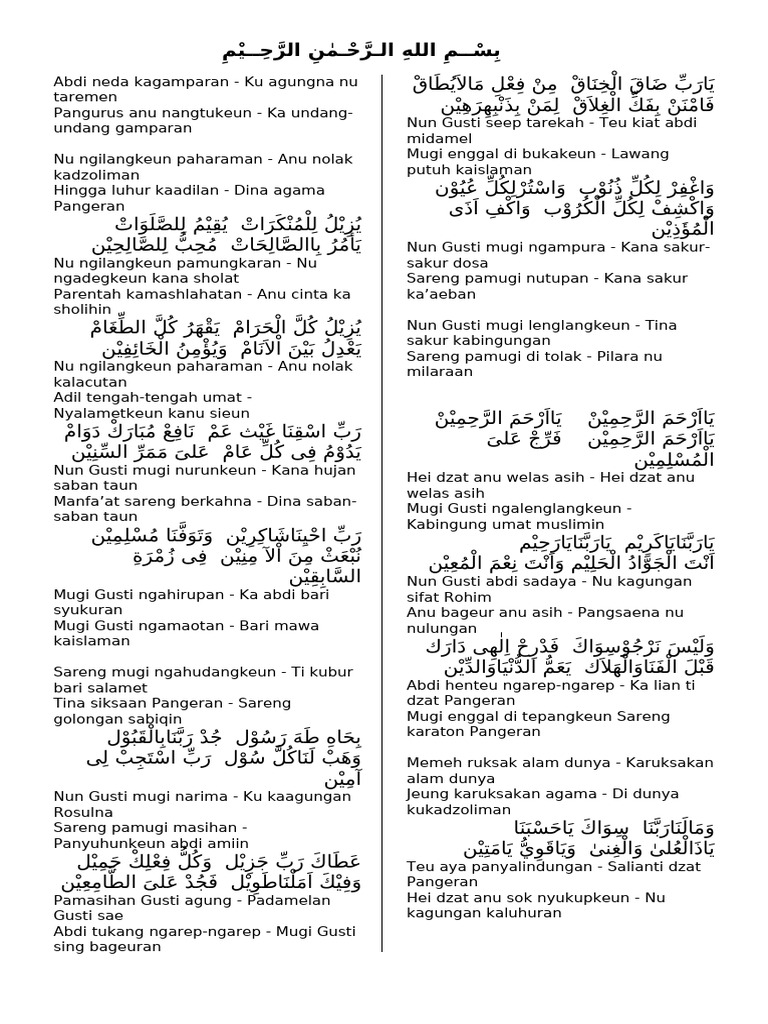 بِسْــمِ اللهِ الـرَّحْـمٰنِ الرَّحِــيْمِ
Abdi neda kagamparan - Ku agungna nu
taremen
Pangurus anu nangtukeun - Ka undang-
undang gamparan
Nu ngilangkeun paharaman - Anu nolak
kadzoliman
Hingga luhur kaadilan - Dina agama
Pangeran
يُزِيْلُ لِلْمُنْكَرَاتْ يُقِيْمُ لِلصَّلَوَاتْ
يَآمُرُ بِاالصَّالِحَاتْ مُحِبُّ لِلصَّالِحِيْن
Nu ngilangkeun pamungkaran - Nu
ngadegkeun kana sholat
Parentah kamashlahatan - Anu cinta ka
sholihin
يُزِيْلُ كُلَّ الْحَرَامْ يَقْهَرُ كُلَّ الطِّغَامْ
يَعْدِلُ بَيْنَ الْاَنَامْ وَيُؤْمِنُ الْخَائِفِيْن
Nu ngilangkeun paharaman - Anu nolak
kalacutan
Adil tengah-tengah umat -
Nyalametkeun kanu sieun
رَبِّ اسْقِنَا غَيْث عَمْ نَافِعْ مُبَارَكْ دَوَامْ
يَدُوْمُ فِى كُلِّ عَامْ عَلىَ مَمَرِّ السِّنِيْن
Nun Gusti mugi nurunkeun - Kana hujan
saban taun
Manfa’at sareng berkahna - Dina saban-
saban taun
رَبِّ احْيِنَاشَاكِرِيْن وَتَوَفَّنَا مُسْلِمِيْن
نُبْعَثْ مِنَ الْآ مِنِيْن فِى زُمْرَةِ
السَّابِقِيْن
Mugi Gusti ngahirupan - Ka abdi bari
syukuran
Mugi Gusti ngamaotan - Bari mawa
kaislaman
Sareng mugi ngahudangkeun - Ti kubur
bari salamet
Tina siksaan Pangeran - Sareng
golongan sabiqin
بِجَاهِ طَهَ رَسُوْل جُدْ رَبَّنَابِالْقَبُوْل
وَهَبْ لَنَاكُلَّ سُوْل رَبِّ اسْتَجِبْ لِى
آمِيْن
Nun Gusti mugi narima - Ku kaagungan
Rosulna
Sareng pamugi masihan -
Panyuhunkeun abdi amiin
عَطَاكَ رَبِّ جَزِيْل وَكُلُّ فِعْلِكْ جَمِيْل
وَفِيْكَ اَمَلْنَاطَوِيْل فَجُدْ عَلىَ الطَّامِعِيْن
Pamasihan Gusti agung - Padamelan
Gusti sae
Abdi tukang ngarep-ngarep - Mugi Gusti
sing bageuran
يَارَبِّ ضَاقَ الْخِنَاقْ مِنْ فِعْلِ مَالاَيُطَاقْ
فَامْنَنْ بِفَكِّ الْغِلاَقْ لِمَنْ بِذَنْبِهِرَهِيْن
Nun Gusti seep tarekah - Teu kiat abdi
midamel
Mugi enggal di bukakeun - Lawang
putuh kaislaman
وَاغْفِرْ لِكُلِّ ذُنُوْب وَاسْتُرْلِكُلِّ عُيُوْن
وَاكْشِفْ لِكُلِّ الْكُرُوْب وَاكْفِ اَذَى
الْمُؤْذِيْن
Nun Gusti mugi ngampura - Kana sakur-
sakur dosa
Sareng pamugi nutupan - Kana sakur
ka’aeban
Nun Gusti mugi lenglangkeun - Tina
sakur kabingungan
Sareng pamugi di tolak - Pilara nu
milaraan
يَااَرْحَمَ الرَّحِمِيْنْ يَااَرْحَمَ الرَّحِمِيْنْ
يَااَرْحَمَ الرَّحِمِيْن فَرِّجْ عَلىَ
الْمُسْلِمِيْن
Hei dzat anu welas asih - Hei dzat anu
welas asih
Mugi Gusti ngalenglangkeun -
Kabingung umat muslimin
يَارَبَّنَايَاكَرِيْم يَارَبَّنَايَارَحِيْم
اَنْتَ الْجَوَّادُ الْحَلِيْم وَاَنْتَ نِعْمَ الْمُعِيْن
Nun Gusti abdi sadaya - Nu kagungan
sifat Rohim
Anu bageur anu asih - Pangsaena nu
nulungan
وَلَيْسَ نَرْجُوْسِوَاكَ فَدْرِكْ اِلٰهِى دَارَك
قَبْلَ الْفَنَاوَالْهَلاَك يَعَمُّ الدُّنْيَاوَالدِّيْن
Abdi henteu ngarep-ngarep - Ka lian ti
dzat Pangeran
Mugi enggal di tepangkeun Sareng
karaton Pangeran
Memeh ruksak alam dunya - Karuksakan
alam dunya
Jeung karuksakan agama - Di dunya
kukadzoliman
وَمَالَنَارَبَّنَا سِوَاكَ يَاحَسْبَنَا
يَاذَالْعُلىَ وَالْغِنىَ وَيَاقَوِيُّ يَامَتِيْن
Teu aya panyalindungan - Salianti dzat
Pangeran
Hei dzat anu sok nyukupkeun - Nu
kagungan kaluhuran